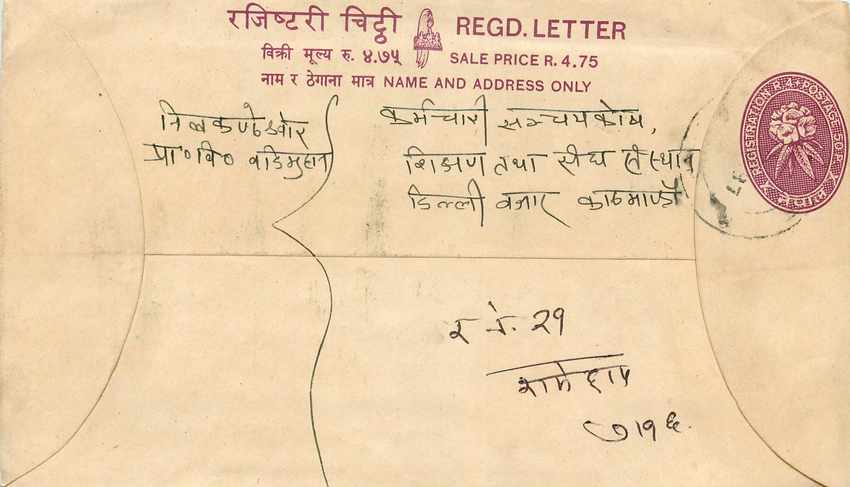 रजिष्टरी चिट्ठी REGD. LETTER
विक्री मूल्य रु. ४.७५ SALE PRICE R. 4.75
नाम र ठेगाना मात्र NAME AND ADDRESS ONLY
REGISTRATION R.4+POSTAGE 50P
निलकण्ठेश्वोर
प्रा०वि०
कर्मचारी सञ्चयकोष,
शिक्षण तथा सँस्थान
डिल्ली बजार काठमाण्डौ
र नं. २१
रामेछाप
७१६